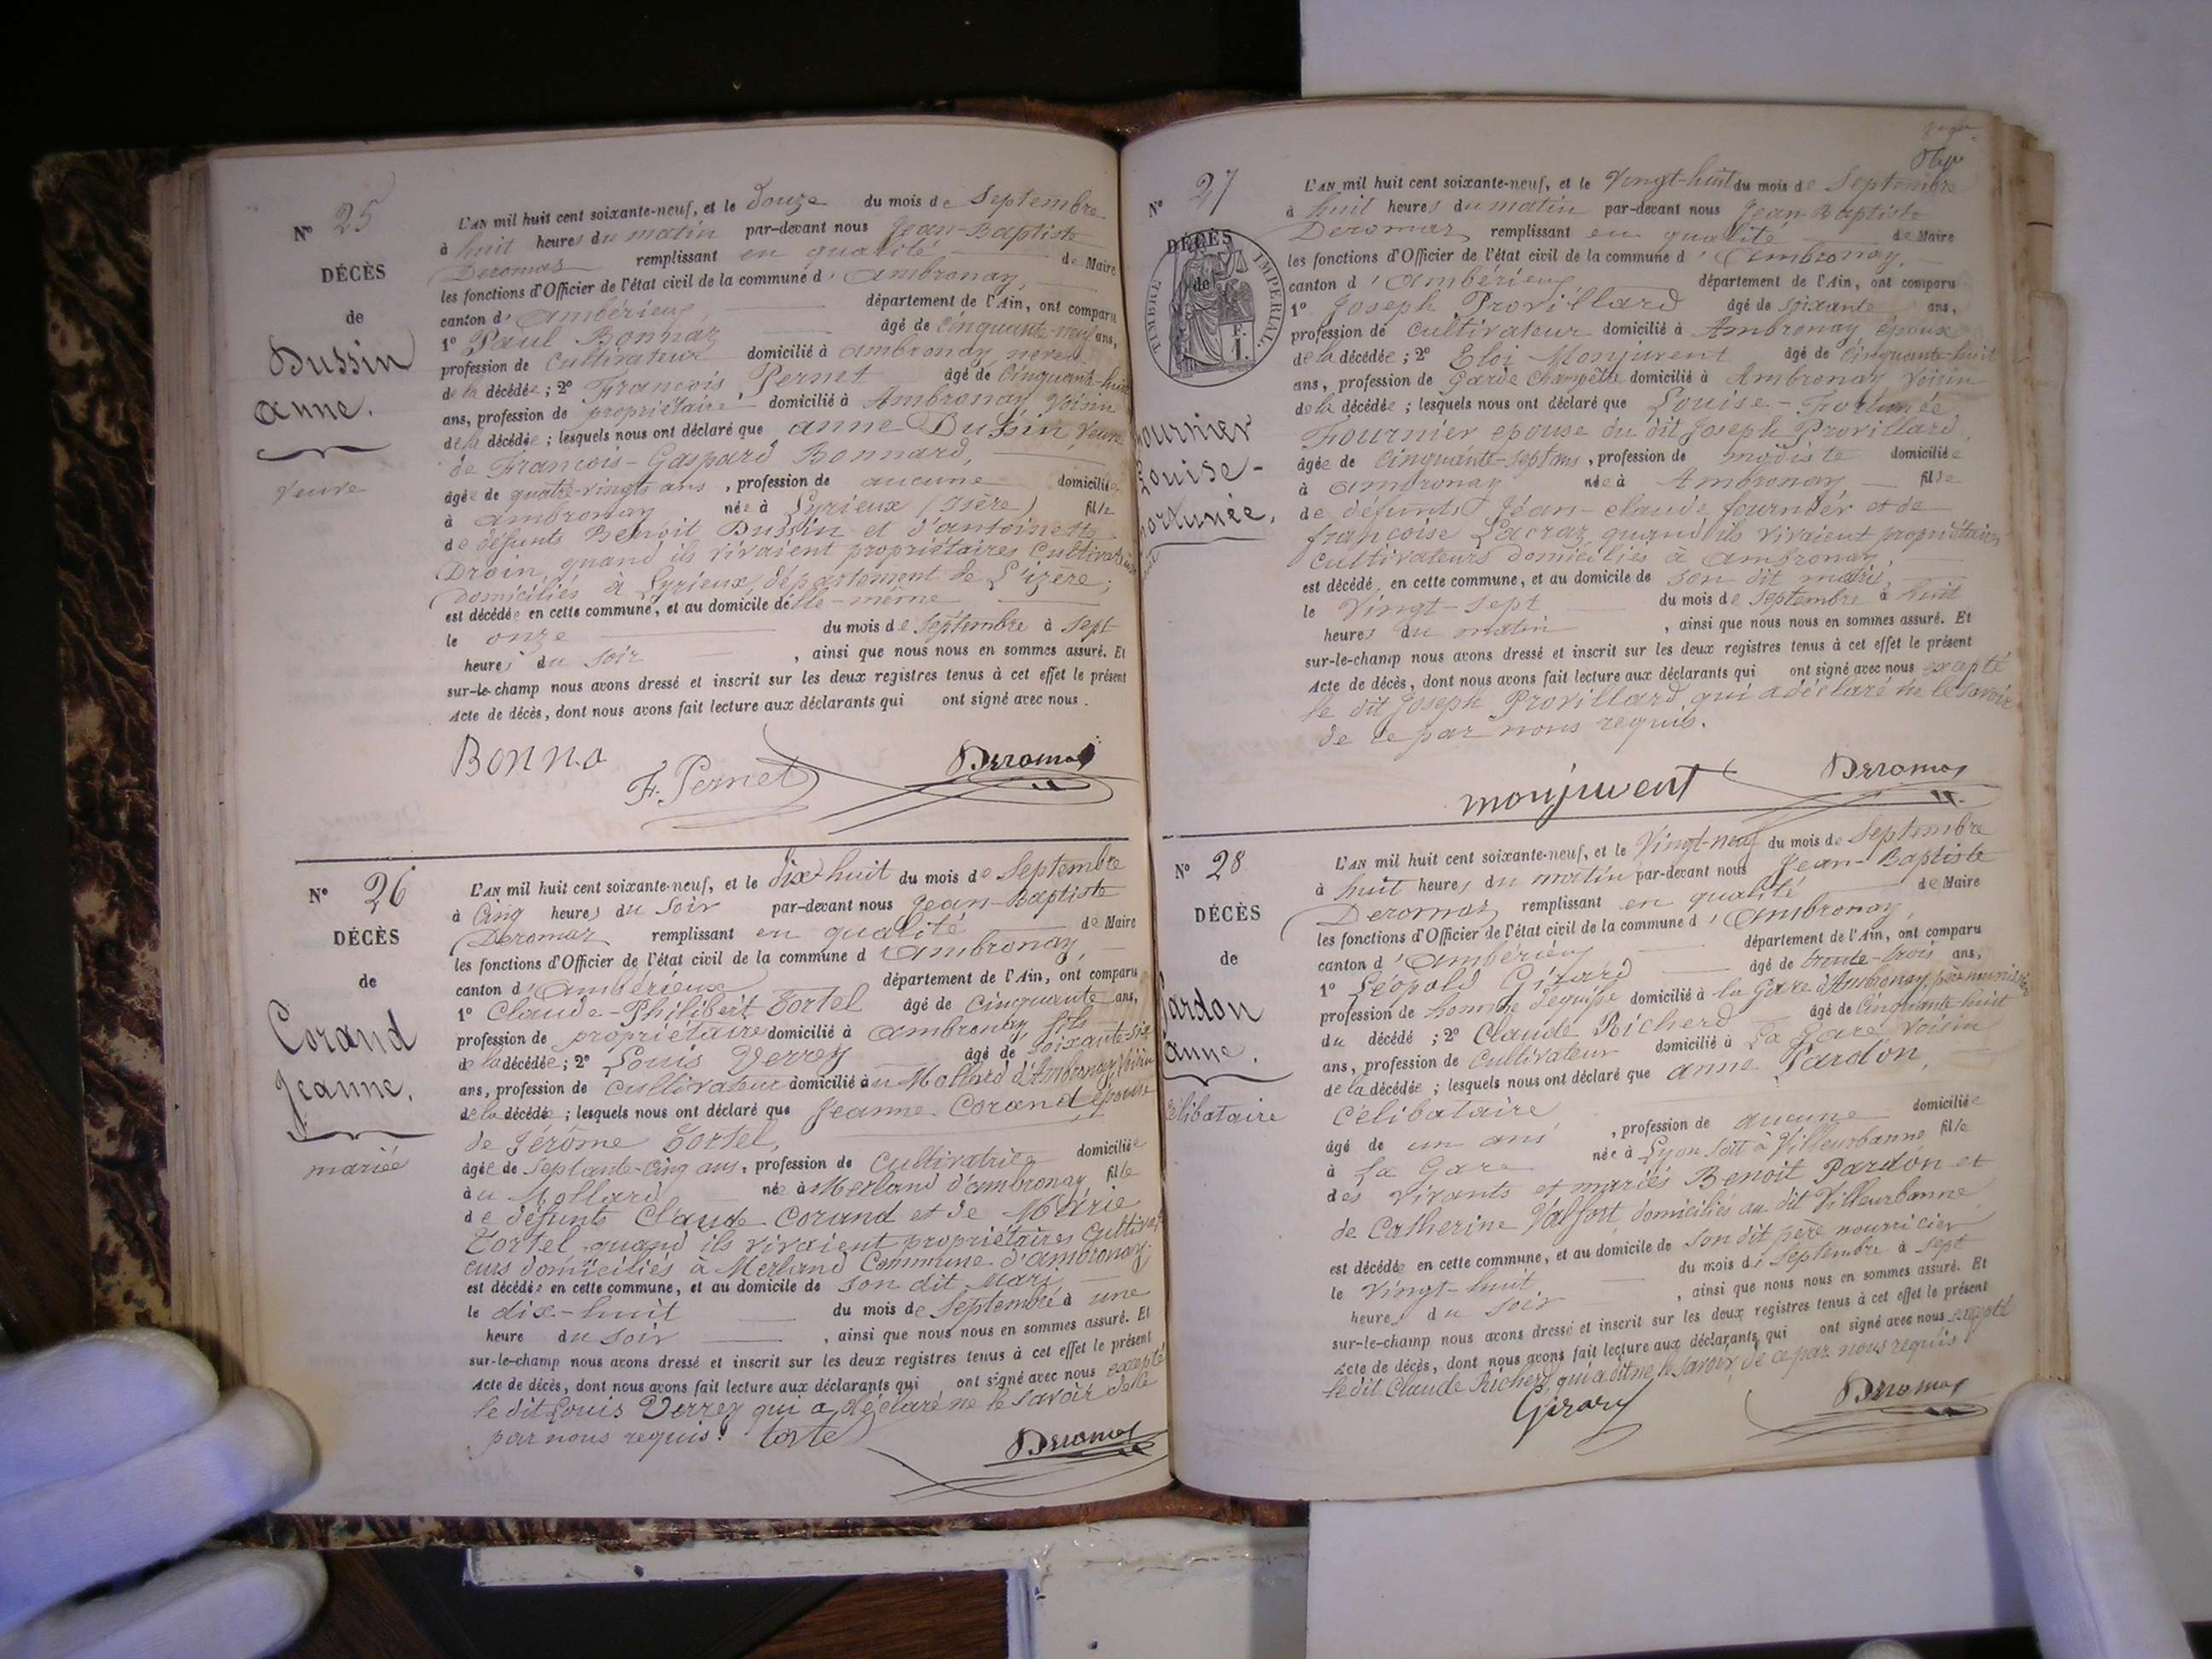 N° 25
DÉCÈS
de
Dussin
anne.
veuve
L'AN mil huit cent soixante-neuf, et le douze du mois de Septembre
à huit heures du matin par-devant nous Jean-Baptiste
Deromas remplissant en qualité de Maire
les fonctions d'Officier de l'état civil de la commune d'ambronay,
canton d'ambérieux, département de l'Ain, ont comparu
1° Paul Bonnaz âgé de cinquante-neuf ans,
profession de Cultivateur domicilié à ambronay
de la décédée ; 2° François Pernet âgé de cinquante-huit
ans, profession de propriétaire domicilié à Ambronay voisin
de la décédée ; lesquels nous ont déclaré que anne Dussin, veuve
de François-Gaspard Bonnard,
âgée de quatre-vingts ans, profession de aucune domiciliée
à ambronay née à Lyrieux (Isère) fille
de défunts Benoit Dussin et d'antoinette
Droin, quand ils vivaient propriétaires Cultivateurs
domiciliés à Lyrieux, département de L'izère;
est décédée en cette commune, et au domicile d'elle-même
le onze du mois de Septembre à sept
heures du soir, ainsi que nous nous en sommes assuré. Et
sur-le-champ nous avons dressé et inscrit sur les deux registres tenus à cet effet le présent
Acte de décès, dont nous avons fait lecture aux déclarants qui ont signé avec nous.
Bonna F. Pernet Deromas
N° 26
DÉCÈS
de
Corand
Jeanne.
mariée
L'AN mil huit cent soixante-neuf, et le dix-huit du mois de Septembre
à Cinq heures du soir par-devant nous Jean-Baptiste
Deromas remplissant en qualité de Maire
les fonctions d'Officier de l'état civil de la commune d'ambronay,
canton d'ambérieux département de l'Ain, ont comparu
1° Claude-Philibert Tortel âgé de cinquante ans,
profession de propriétaire domicilié à ambronay fils
de la décédée ; 2° Louis Verrey âgé de soixante-six
ans, profession de cultivateur domicilié au Mollard d'Ambronay voisin
de la décédée ; lesquels nous ont déclaré que Jeanne Corand épouse
de Jérôme Tortel,
âgée de septante-cinq ans, profession de Cultivatrice domiciliée
au Mollard née à Merland d'ambronay fille
de défunts Claude Corand et de Marie
Tortel quand ils vivaient propriétaires cultivat
eurs domiciliés à Merland Commune d'ambronay.
est décédée en cette commune, et au domicile de son dit mary,
le dix-huit du mois de Septembre à une
heure du soir, ainsi que nous nous en sommes assuré. Et
sur-le-champ nous avons dressé et inscrit sur les deux registres tenus à cet effet le présent
Acte de décès, dont nous avons fait lecture aux déclarants qui ont signé avec nous excepté
le dit Louis Verrey qui a déclaré ne le savoir de le
par nous requis. tortel Deromas
N° 27
DÉCÈS
de
TIMBRE IMPERIAL
ournier
Louise-
ortunée.
L'AN mil huit cent soixante-neuf, et le Vingt-huit du mois de Septembre
à huit heures du matin par-devant nous Jean-Baptiste
Deromas remplissant en qualité de Maire
les fonctions d'Officier de l'état civil de la commune d'Ambronay,
canton d'Ambérieux département de l'Ain, ont comparu
1° Joseph Provillard âgé de soixante ans,
profession de cultivateur domicilié à Ambronay époux
de la décédée ; 2° Eloi Monjuvent âgé de cinquante-huit
ans, profession de garde champêtre domicilié à Ambronay voisin
de la décédée ; lesquels nous ont déclaré que Louise-Fortunée
Fournier epouse du dit Joseph Provillard,
âgée de cinquante-sept ans, profession de modiste domiciliée
à ambronay née à Ambronay fille
de défunts Jean-claude fournier et de
françoise Lacraz quand ils vivaient propriétaires
cultivateurs domiciliés à ambronay,
est décédé en cette commune, et au domicile de son dit mari,
le Vingt-sept du mois de Septembre à huit
heures du matin, ainsi que nous nous en sommes assuré. Et
sur-le-champ nous avons dressé et inscrit sur les deux registres tenus à cet effet le présent
Acte de décès, dont nous avons fait lecture aux déclarants qui ont signé avec nous excepté
le dit Joseph Provillard, qui a déclaré ne le savoir
de ce par nous requis.
monjuvent Deromas
N° 28
DÉCÈS
de
Pardon
anne.
célibataire
L'AN mil huit cent soixante-neuf, et le Vingt-neuf du mois de Septembre
à huit heures du matin par-devant nous Jean-Baptiste
Deromas remplissant en qualité de Maire
les fonctions d'Officier de l'état civil de la commune d'ambronay,
canton d'ambérieux département de l'Ain, ont comparu
1° Léopold Girard âgé de trente-trois ans,
profession de homme d'équipe domicilié à la Gare d'Ambronay,
du décédé ; 2° Claude Richerd âgé de cinquante-huit
ans, profession de Cultivateur domicilié à La Gare voisin
de la décédée ; lesquels nous ont déclaré que anne Pardon,
célibataire
âgé de un ans, profession de aucune domiciliée
à La Gare née à Lyon soit à Villeurbanne fille
des vivants et mariés Benoit Pardon et
de Catherine Valfort domiciliés au dit Villeurbanne
est décédée en cette commune, et au domicile de son dit père nourricier
le vingt-huit du mois de Septembre à sept
heures du soir, ainsi que nous nous en sommes assuré. Et
sur-le-champ nous avons dressé et inscrit sur les deux registres tenus à cet effet le présent
Acte de décès, dont nous avons fait lecture aux déclarants qui ont signé avec nous excepté
le dit Claude Richerd, qui a dit ne le savoir de ce par nous requis.
Girard Deromas